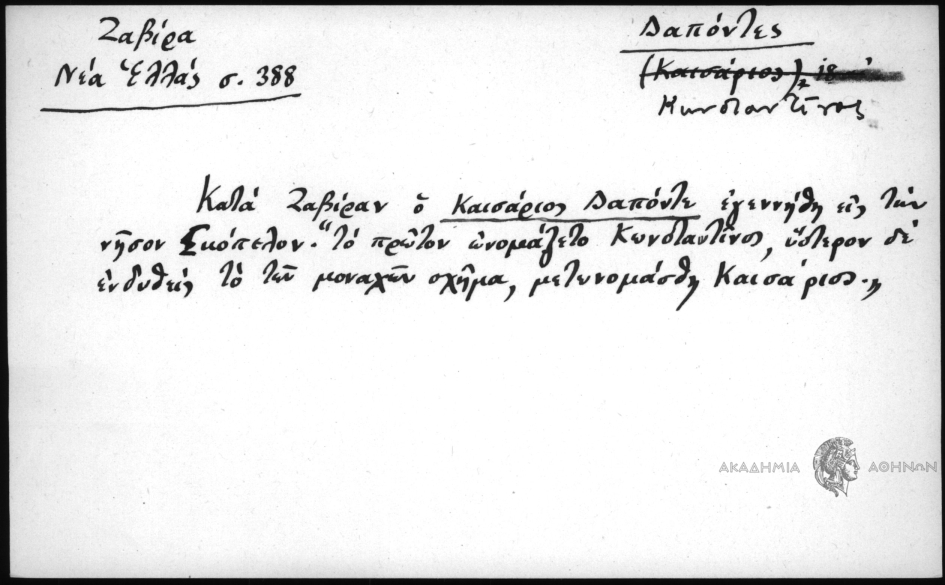 Ζαβίρα
Νέα Ἑλλάς σ. 388
Δαπόντες
(Καισάριος), 18
Κωνσταντῖνος
Κατά Ζαβίραν ὁ Καισάριος Δαπόντε ἐγεννήθη εἰς τήν
νῆσον Σκόπελον. "τό πρῶτον ὠνομάζετο Κωνσταντῖνος, ὕστερον δέ
ἐνδυθείς τό τῶν μοναχῶν σχῆμα, μετωνομάσθη Καισάριος."
ΑΚΑΔΗΜΙΑ ΑΘΗΝΩΝ